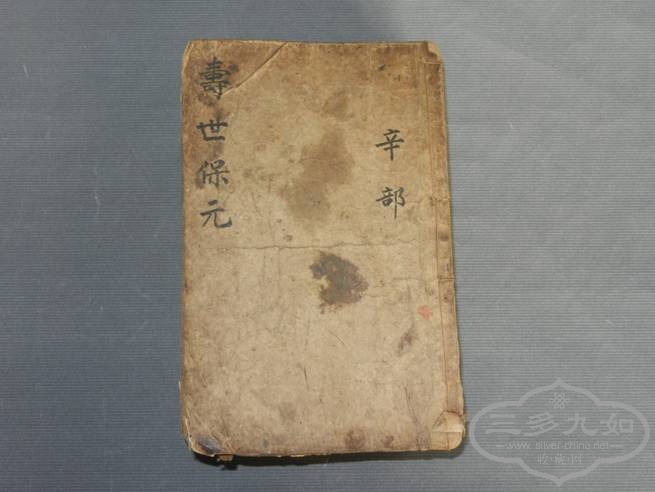 辛部
壽世保元
三多九如
www.silver-china.net
收藏网